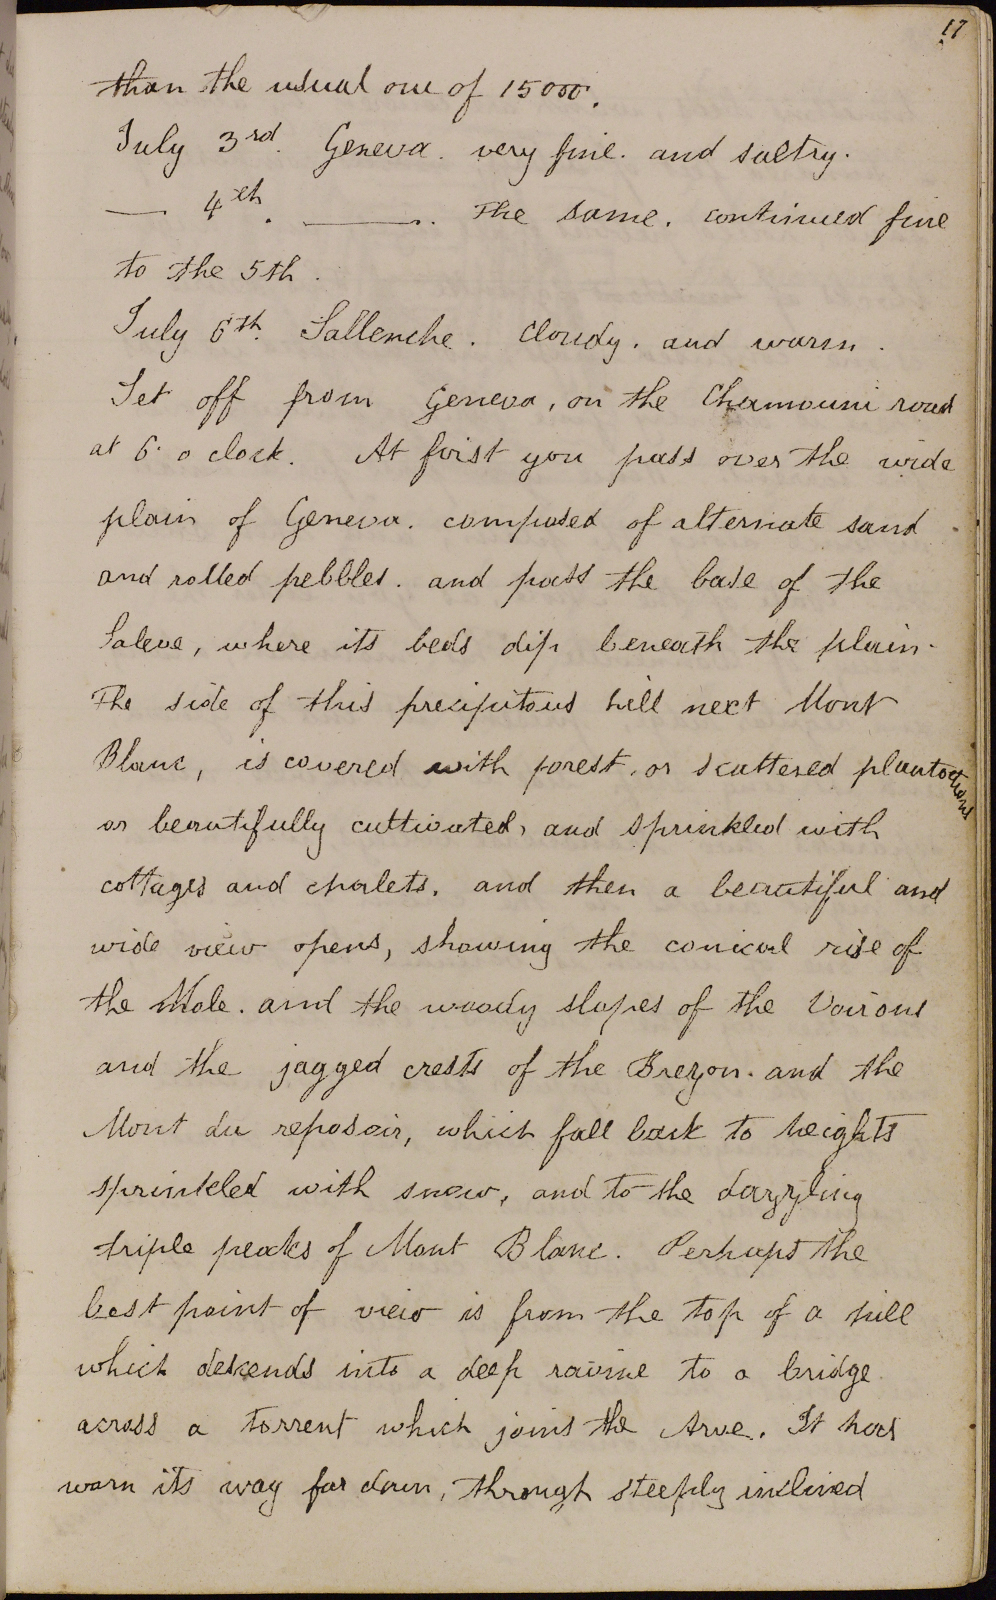 17
than the usual one of 15000.
July 3rd. Geneva. very fine. and sultry.
— 4th. ———. The same. continued fine
to the 5th.
July 6th. Sallenche. Cloudy. and warm.
Set off from Geneva, on the Chamouni road
at 6. o clock. At first you pass over the wide
plain of Geneva. composed of alternate sand
and rolled pebbles. and pass the base of the
Saleve, where its beds dip beneath the plain.
The side of this precipitous hill next Mont
Blanc, is covered with forest, or scattered plantations
or beautifully cultivated, and sprinkled with
cottages and chalets. and then a beautiful and
wide view opens, showing the conical rise of
the Mole. and the woody slopes of the Voirons
and the jagged crests of the Brezon. and the
Mont du reposoir, which fall back to heights
sprinkled with snow, and to the dazzling
triple peaks of Mont Blanc. Perhaps the
best point of view is from the top of a hill
which descends into a deep ravine to a bridge
across a torrent which joins the Arve. It has
worn its way far down, through steeply inclined